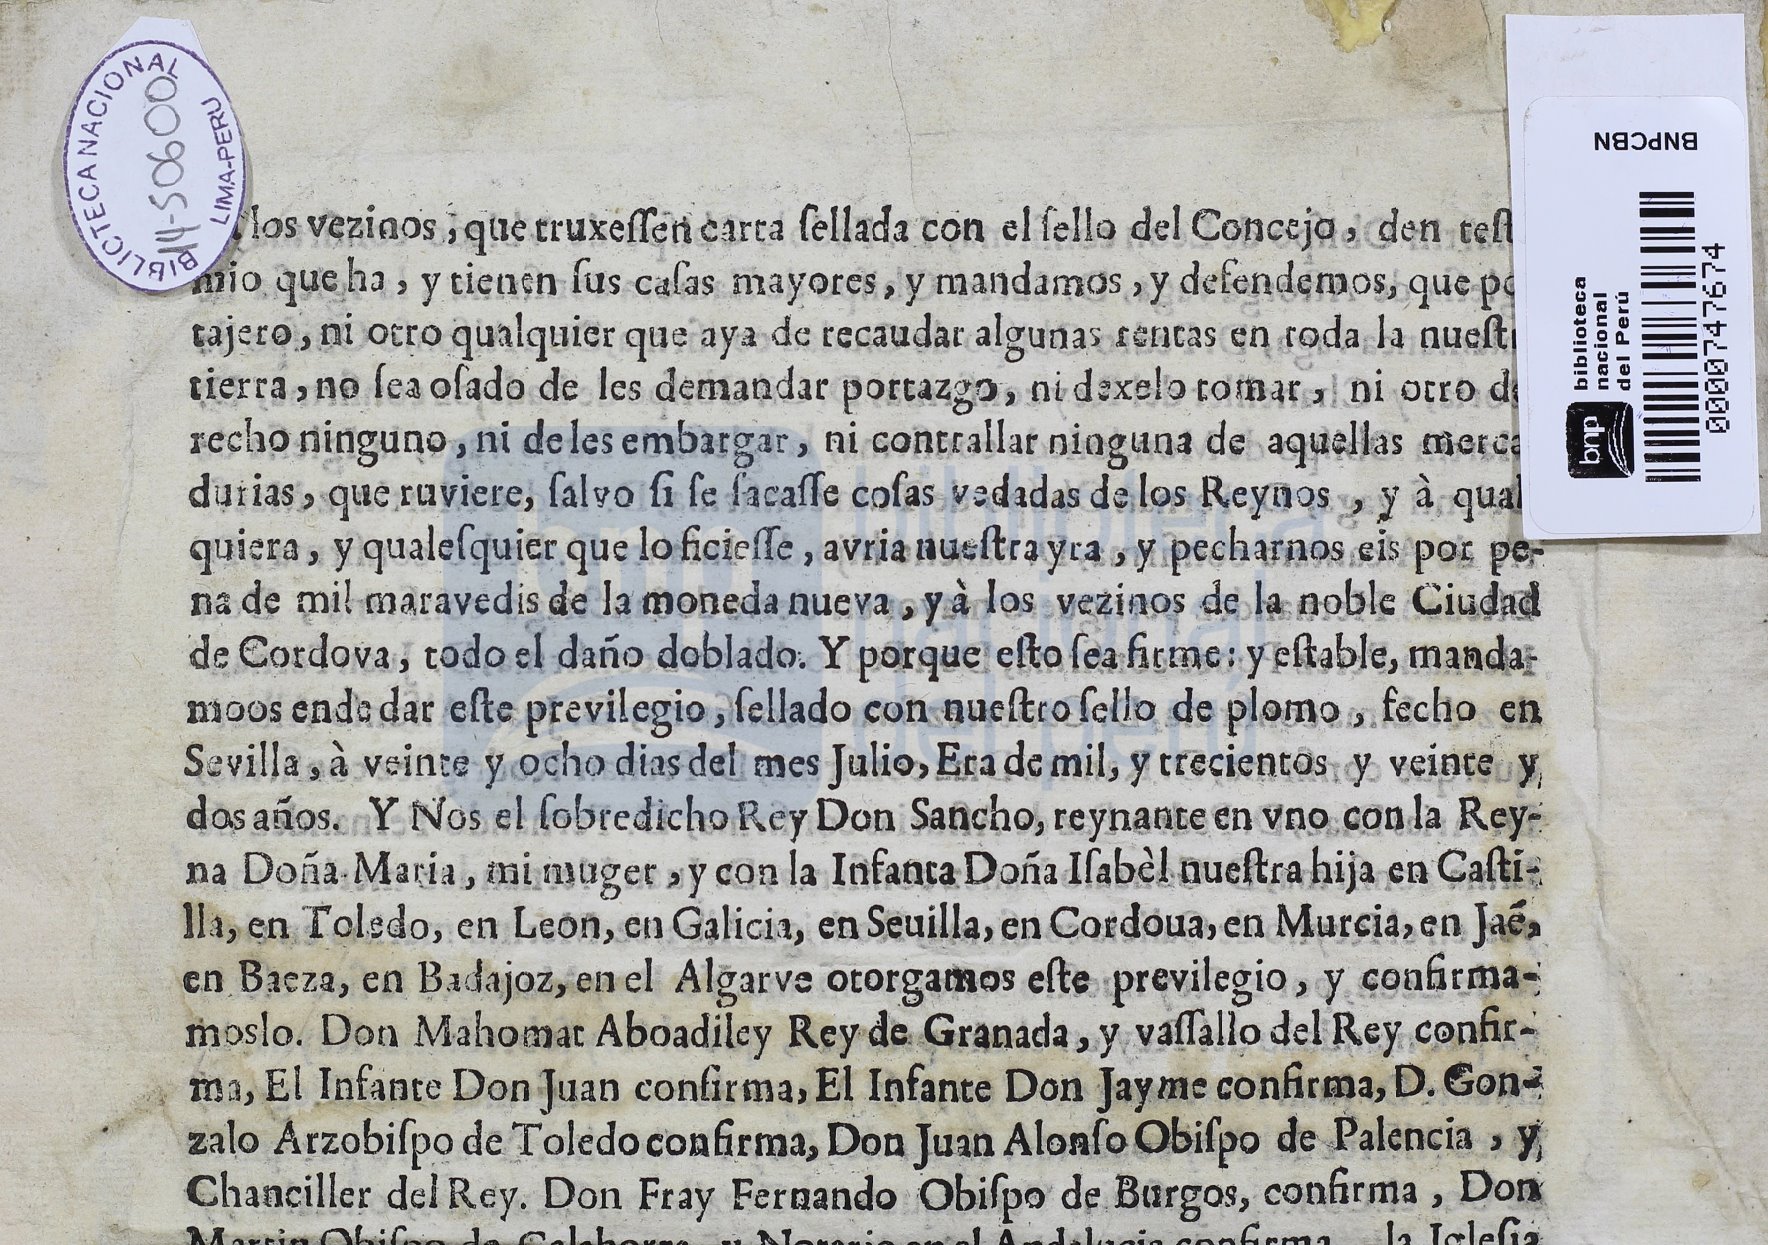 BIBLICTECA NACIONAL
LIMA-PERU
BNPCBN
biblioteca
nacional
del Perú
bnp
0000747674
los vezinos, que truxeſſen carta ſellada con el ſello del Concejo, den teſt
que ha, y tienen ſus caſas mayores, y mandamos, y defendemos, que
tajero, ni otro qualquier que aya de recaudar algunas rentas en toda la nueſt
tierra, no ſea oſado de les demandar portazgo, ni dexelo tomar, ni otro de
recho ninguno, ni de les embargar, ni contrallar ninguna de aquellas merca
durias, que tuviere, ſalvo ſi ſe ſacaſſe coſas vedadas de los Reynos, y à qual
quiera, y qualeſquier que lo ficieſſe, avria nueſtra yra, y pecharnos eis por pe-
na de mil maravedis de la moneda nueva, y à los vezinos de la noble Ciudad
de Cordova, todo el daño doblado. Y porque eſto ſea firme: y eſtable, manda-
moos ende dar eſte previlegio, ſellado con nueſtro ſello de plomo, fecho en
Sevilla, à veinte y ocho dias del mes Julio, Era de mil, y trecientos y veinte y
dos años. Y Nos el ſobredicho Rey Don Sancho, reynante en vno con la Rey-
na Doña Maria, mi muger, y con la Infanta Doña Iſabèl nueſtra hija en Caſti-
lla, en Toledo, en Leon, en Galicia, en Seuilla, en Cordoua, en Murcia, en Jaẽ,
en Baeza, en Badajoz, en el Algarve otorgamos eſte previlegio, y confirma-
moslo. Don Mahomat Aboadiley Rey de Granada, y vaſſallo del Rey confir-
ma, El Infante Don Juan confirma, El Infante Don Jayme confirma, D. Gon-
zalo Arzobiſpo de Toledo confirma, Don Juan Alonſo Obiſpo de Palencia, y
Chanciller del Rey. Don Fray Fernando Obiſpo de Burgos, confirma, Don
Martin Obiſpo de Calahorra, y Notario en el Andalucia confirma, la Igleſia